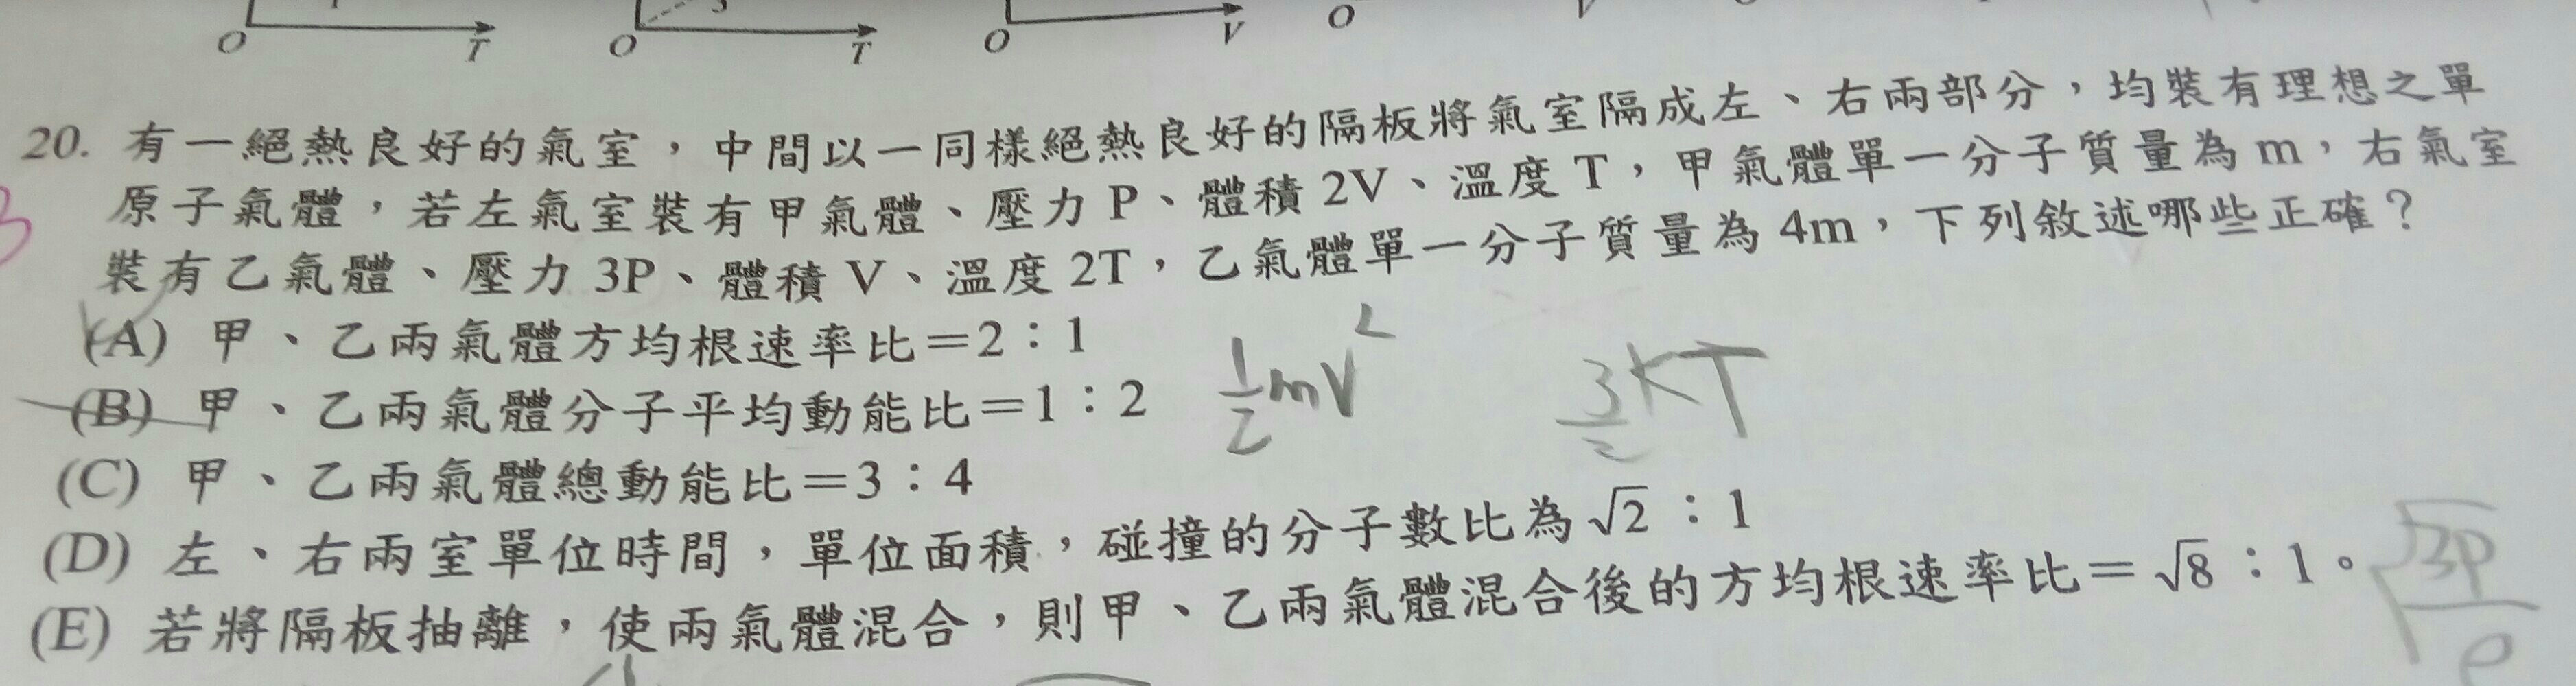 O T O T O V O V
20. 有一絕熱良好的氣室，中間以一同樣絕熱良好的隔板將氣室隔成左、右兩部分，均裝有理想之單
原子氣體，若左氣室裝有甲氣體、壓力 P、體積 2V、溫度 T，甲氣體單一分子質量為 m，右氣室
裝有乙氣體、壓力 3P、體積 V、溫度 2T，乙氣體單一分子質量為 4m，下列敘述哪些正確？
(A) 甲、乙兩氣體方均根速率比＝2：1
(B) 甲、乙兩氣體分子平均動能比＝1：2
½mV² 3/2 KT
(C) 甲、乙兩氣體總動能比＝3：4
(D) 左、右兩室單位時間，單位面積，碰撞的分子數比為√2：1
(E) 若將隔板抽離，使兩氣體混合，則甲、乙兩氣體混合後的方均根速率比＝√8：1。
√3P/ρ